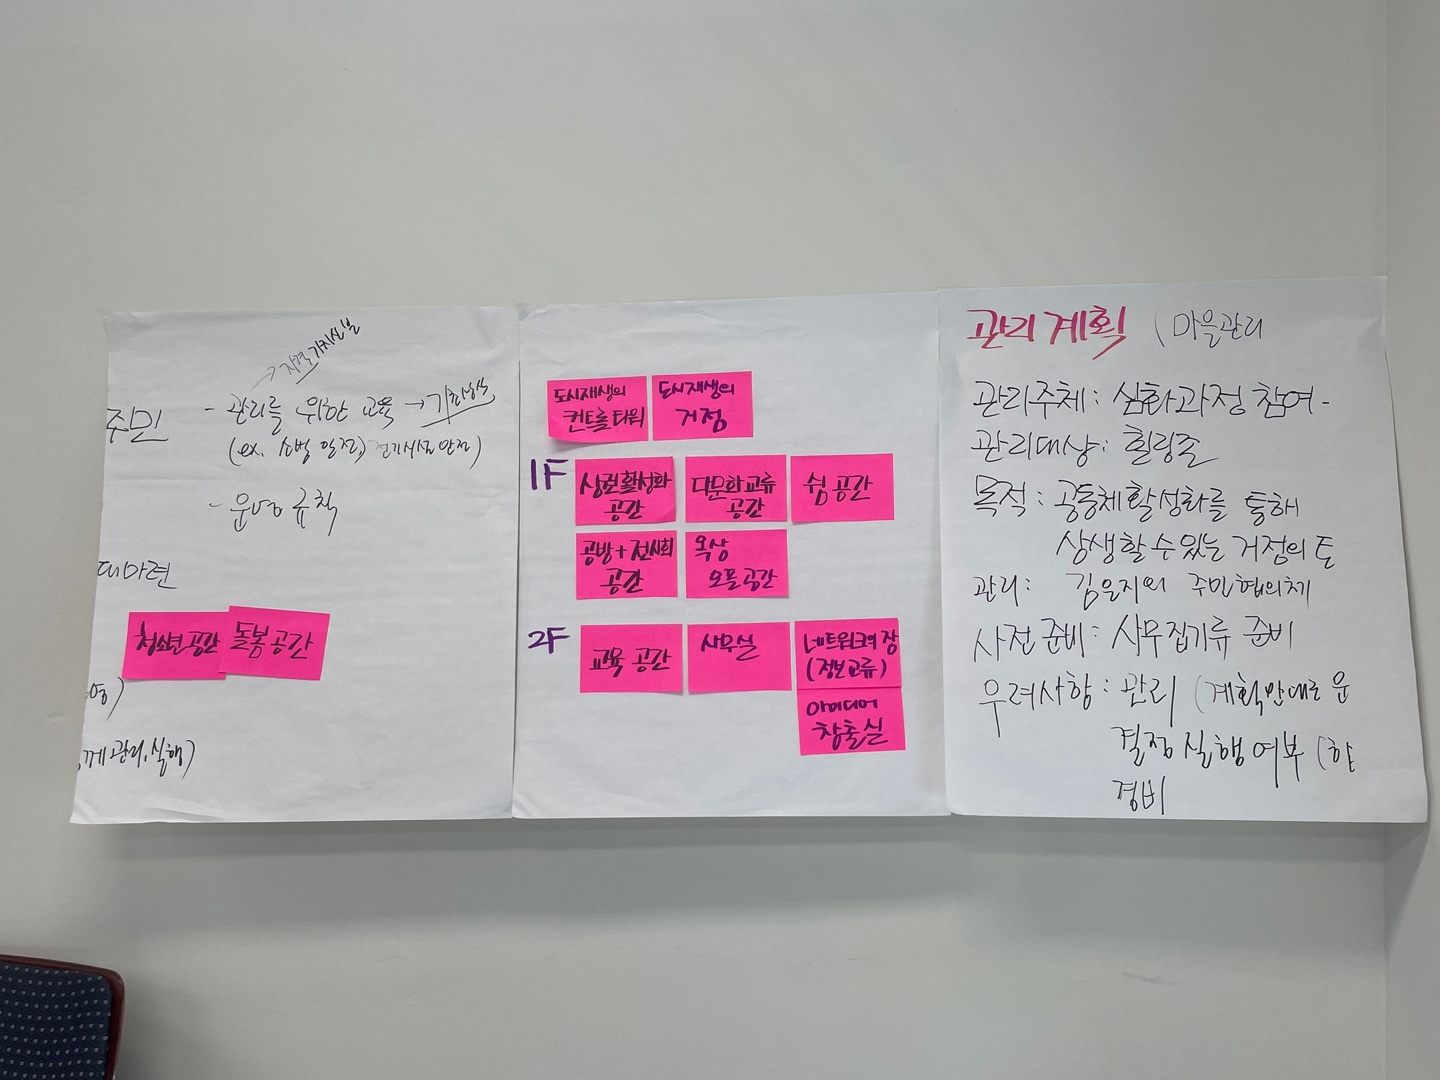 주민
- 관리를 위한 교육 →
(ex. 소방 안전, 전기시설 안전)
- 운영 규칙
대마련
청소년 공간
돌봄 공간
영)
께 관리, 실행)
도시재생의
컨트롤 타워
도시재생의
거점
1F
상권활성화
공간
다문화교류
공간
쉼 공간
공방 + 전시회
공간
옥상
오픈 공간
2F
교육 공간
사무실
네트워크의 장
(정보교류)
아이디어
창출실
관리 계획 (마을관리
관리주체: 심화과정 참여
관리대상: 힐링존
목적: 공동체 활성화를 통해
상생할 수 있는 거점의 토
관리: 김은지외 주민협의체
사전 준비: 사무집기류 준비
우려사항: 관리 (계획만대로 운
결정 실행 여부 (향
경비